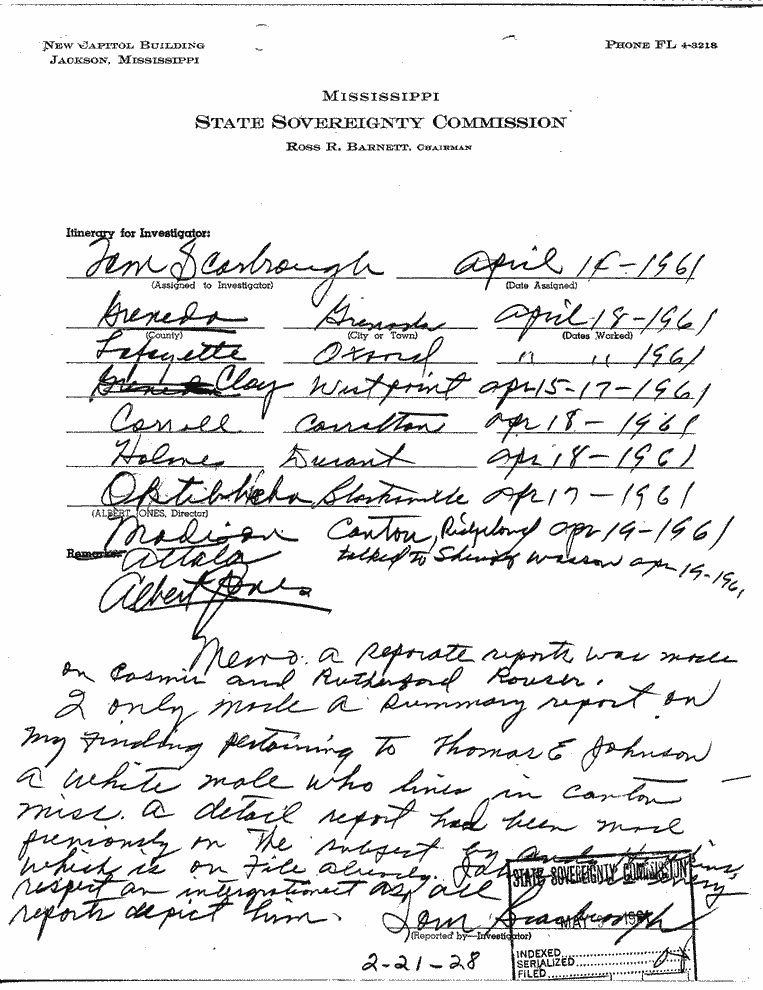 NEW CAPITOL BUILDING
JACKSON, MISSISSIPPI
PHONE FL 4-3218
MISSISSIPPI
STATE SOVEREIGNTY COMMISSION
ROSS R. BARNETT, CHAIRMAN
Itinerary for Investigator:
Tom Scarbrough April 14-1961
(Assigned to Investigator) (Date Assigned)
Grenada Grenada April 18-1961
(County) (City or Town) (Dates Worked)
Lafayette Oxford " " 1961
Clay Westpoint apr 15-17-1961
Carroll Carrolton apr 18-1961
Holmes Durant apr 18-1961
Oktibbeha Starkville apr 17-1961
(ALBERT JONES, Director)
Madison Canton, Ridgeland apr 19-1961
Remarks: Attala talked to Sheriff Wasson apr 19-1961
Albert Jones
Memo. a seperate report was made
on Cosmir and Rutherford Rouser.
I only made a summary report on
my finding pertaining to Thomas E Johnson
a white male who lives in Canton
miss. a detail report had been made
previously on the subject by
which is on file already.
respect an intergrationest as all
reports depict him.
Tom Scarbrough
(Reported by—Investigator)
2-21-28
STATE SOVEREIGNTY COMMISSION
MAY 1961
INDEXED
SERIALIZED
FILED